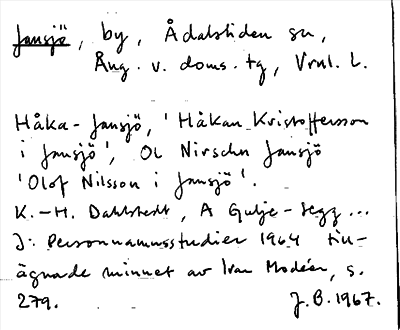 Jansjö, by, Ådalsliden sn,
Ång. v. doms. tg, Vnrl. L.
Håka-Jansjö, 'Håkan Kristoffersson
i Jansjö', Ol Nirschn Jansjö
'Olof Nilsson i Jansjö'.
K.-H. Dahlstedt, A Gulje-Segg...
J: Personnamnsstudier 1964 till-
ägnade minnet av Ivar Modéer, s.
279. J.B. 1967.